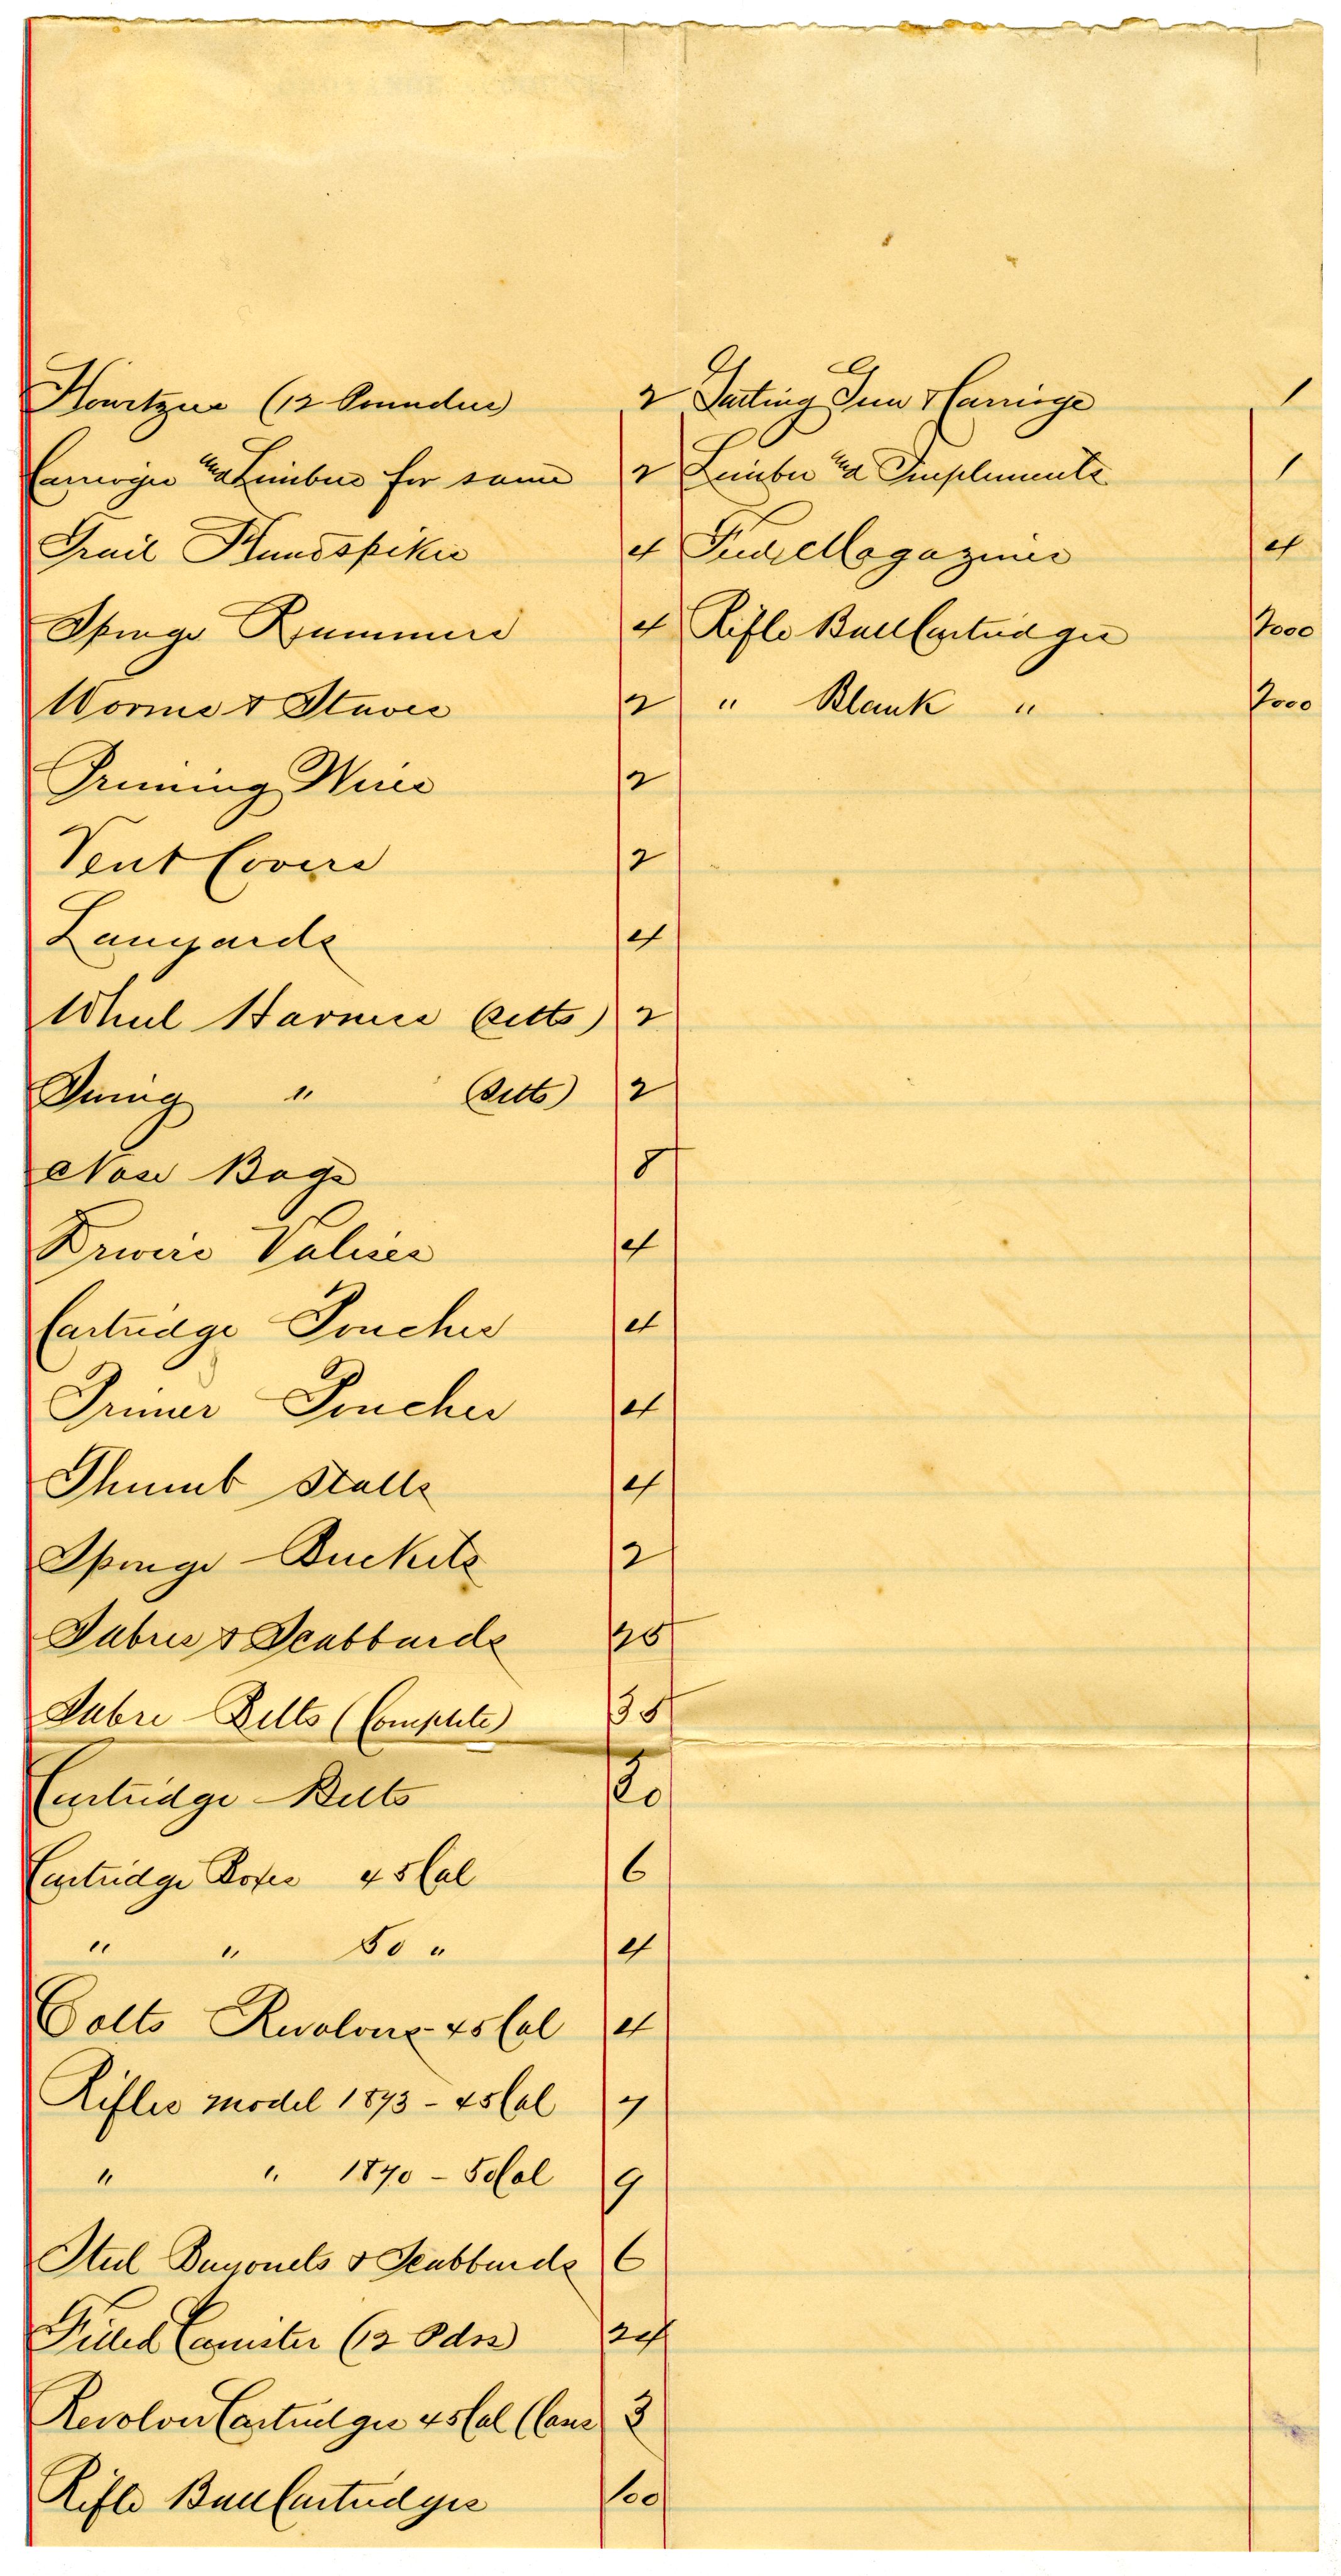 Howitzers (12 Pounders) 2
Carriages and Limbers for same 2
Trail Handspikes 4
Sponge Rammers 4
Worms & Staves 2
Priming Wires 2
Vent Covers 2
Lanyards 4
Wheel Harness (setts) 2
Swing " (setts) 2
Nose Bags 8
Drivers Valises 4
Cartridge Pouches 4
Primer Pouches 4
Thumb Stalls 4
Sponge Buckets 2
Sabres & Scabbards
Sabre Belts (Complete) 35
Cartridge Belts
Cartridge Boxes 45 Cal 6
" " 50 " 4
Colts Revolvers 45 Cal 4
Rifles model 1873 - 45 Cal
" " 1870 - 50 Cal 9
Steel Bayonets & Scabbards 6
Filled Canister (12 Pdrs) 24
Revolver Cartridges 45 Cal ( 3
Rifle Ball Cartridges 100
Gatling Gun & Carriage 1
Limber and Implements 1
Feed Magazines 4
Rifle Ball Cartridges
" Blank "